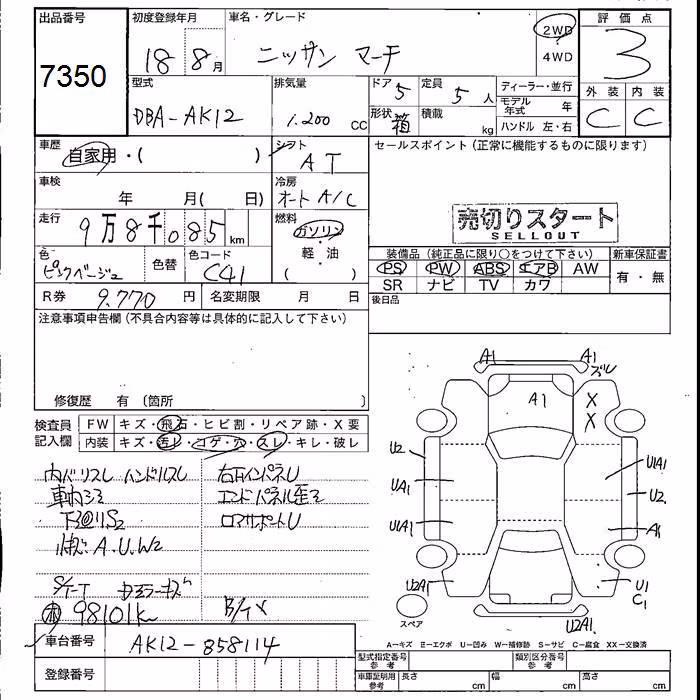 出品番号
7350
初度登録年月
18 8月
車名・グレード
ニッサン マーチ
2WD
4WD
評価点
3
外装 内装
C C
型式
DBA-AK12
排気量
1.200 CC
ドア 5
定員 5人
形状 箱
積載 kg
ディーラー・並行
モデル年式 年
ハンドル 左・右
車歴
自家用・( )
シフト
AT
セールスポイント(正常に機能するものに限ります)
車検
年 月( 日)
冷房
オート A/C
走行
9万8千085km
燃料
ガソリン
・軽・油
( )
売切りスタート
SELLOUT
色
ピンクベージュ
色替
色コード
C41
装備品(純正品に限り○をつけて下さい)
新車保証書
PS PW ABS エアB AW
SR ナビ TV カワ
有・無
R券 9.770円
名変期限 月 日
後日品
注意事項申告欄(不具合内容等は具体的に記入して下さい)
修復歴 有(箇所
検査員記入欄
FW キズ・飛石・ヒビ割・リペア跡・X要
内装 キズ・汚レ・コゲ・穴・スレ・キレ・破レ
ハンドルスレ
98101k
車台番号
AK12-858114
登録番号
A1 A1 ズレ
A1 X
X
U2 U1A1
UA1 U2
U1A1 A1
U2A1 U1
C1
スペア
U2A1
A=キズ E=エクボ U=凹み W=補修跡 S=サビ C=腐食 XX=交換済
型式指定番号 参考
類別区分番号 参考
車庫証明用 参考
長さ cm 幅 cm 高さ cm